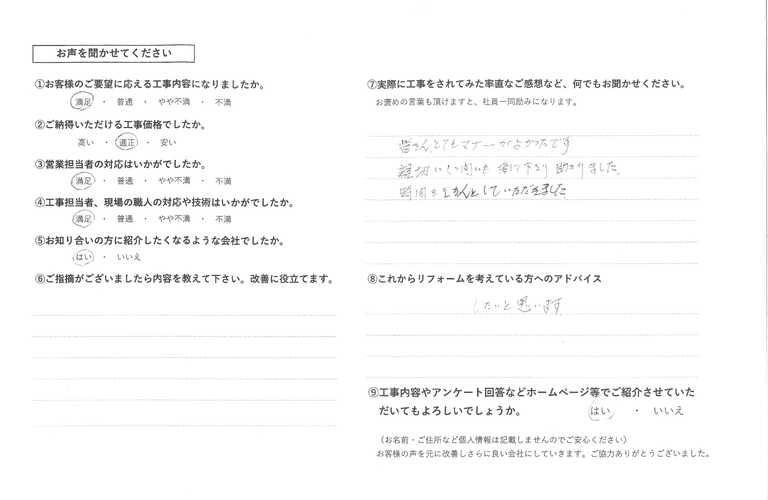 お声を聞かせてください
①お客様のご要望に応える工事内容になりましたか。
満足 ・ 普通 ・ やや不満 ・ 不満
②ご納得いただける工事価格でしたか。
高い ・ 適正 ・ 安い
③営業担当者の対応はいかがでしたか。
満足 ・ 普通 ・ やや不満 ・ 不満
④工事担当者、現場の職人の対応や技術はいかがでしたか。
満足 ・ 普通 ・ やや不満 ・ 不満
⑤お知り合いの方に紹介したくなるような会社でしたか。
はい ・ いいえ
⑥ご指摘がございましたら内容を教えて下さい。改善に役立てます。
⑦実際に工事をされてみた率直なご感想など、何でもお聞かせください。
お褒めの言葉も頂けますと、社員一同励みになります。
皆さんとてもマナーがよかったです
親切に 下さり 助かりました。
時間をきちんとしていただきました
⑧これからリフォームを考えている方へのアドバイス
したいと思います
⑨工事内容やアンケート回答などホームページ等でご紹介させていた
だいてもよろしいでしょうか。 はい ・ いいえ
（お名前・ご住所など個人情報は記載しませんのでご安心ください）
お客様の声を元に改善しさらに良い会社にしていきます。ご協力ありがとうございました。